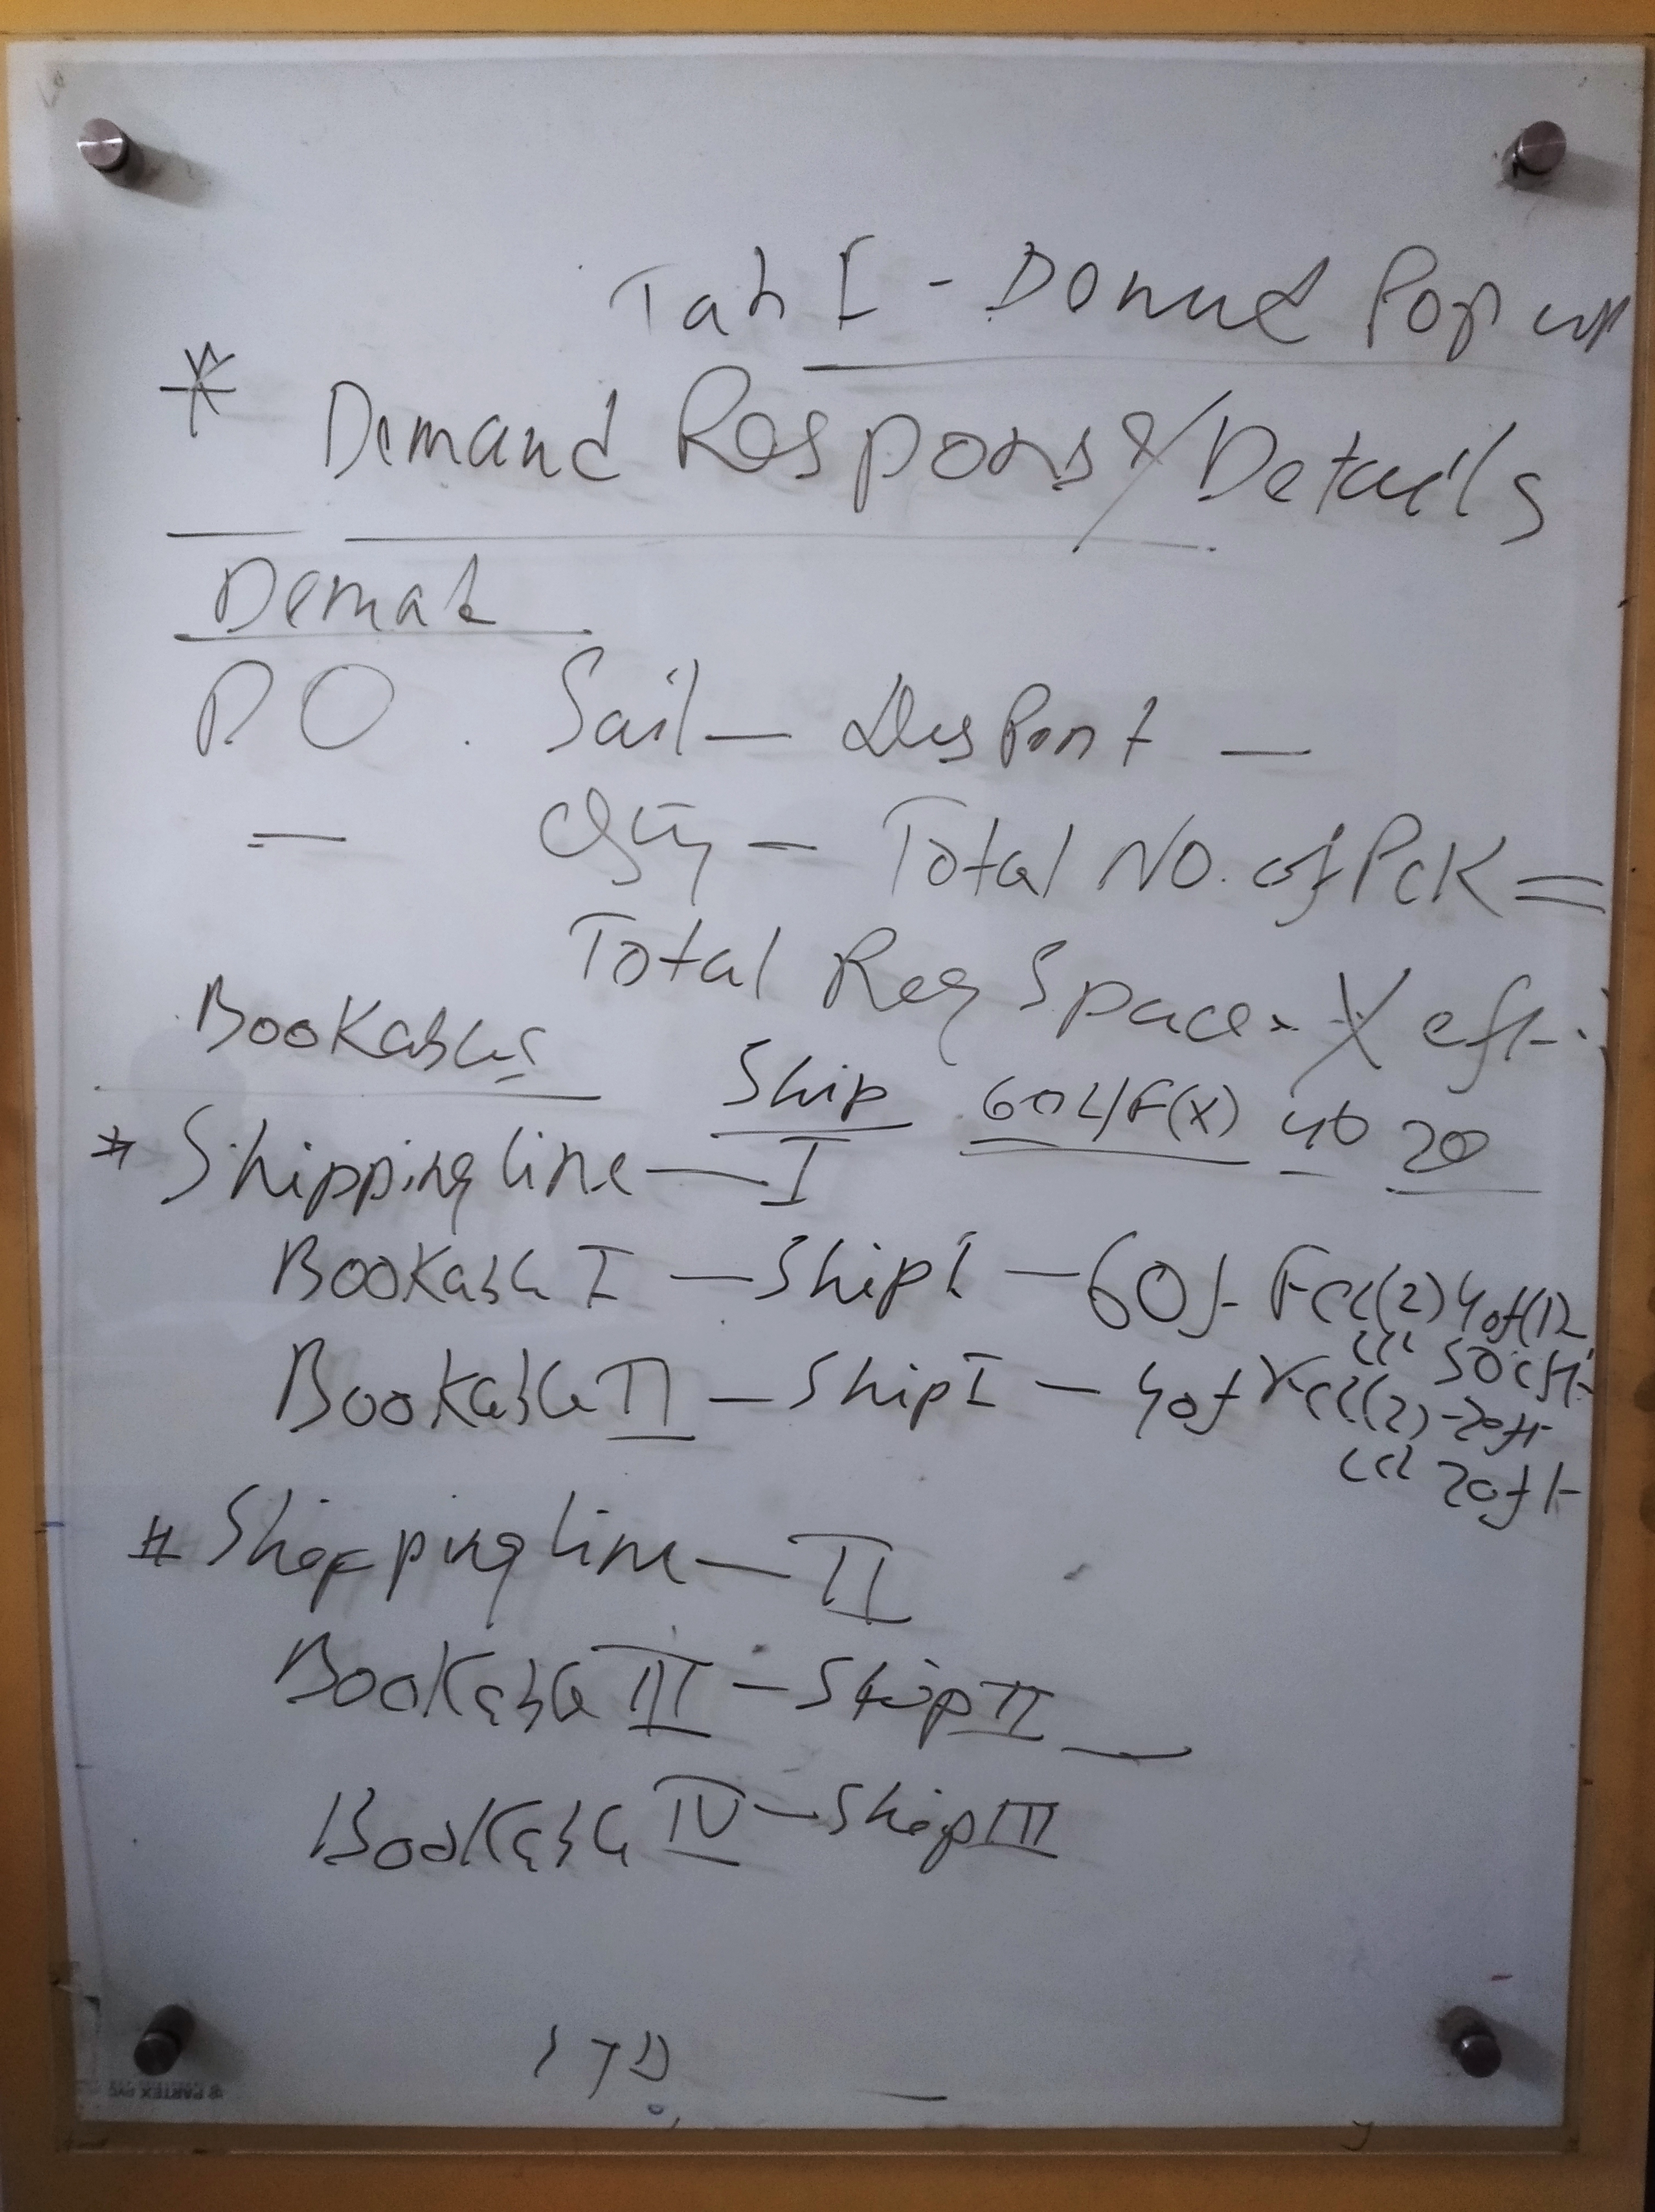 Tab I - Demand Pop up
* Demand Response/Details
Demad
PO . Sail — Des Port —
— Qty — Total NO. of Pck =
Total Req Space - X cft.
Bookables
Ship 60 4/F(X) 40 20
# Shippingline — I
Bookable I — Ship I — 60f Fcl(2) 40f(12
lcl 50cft
Bookable II — Ship I — 40f Fcl(2) - 20ft
lcl 20ft
# Shippingline — II
Bookable III — Ship II —
Bookable IV — Ship III